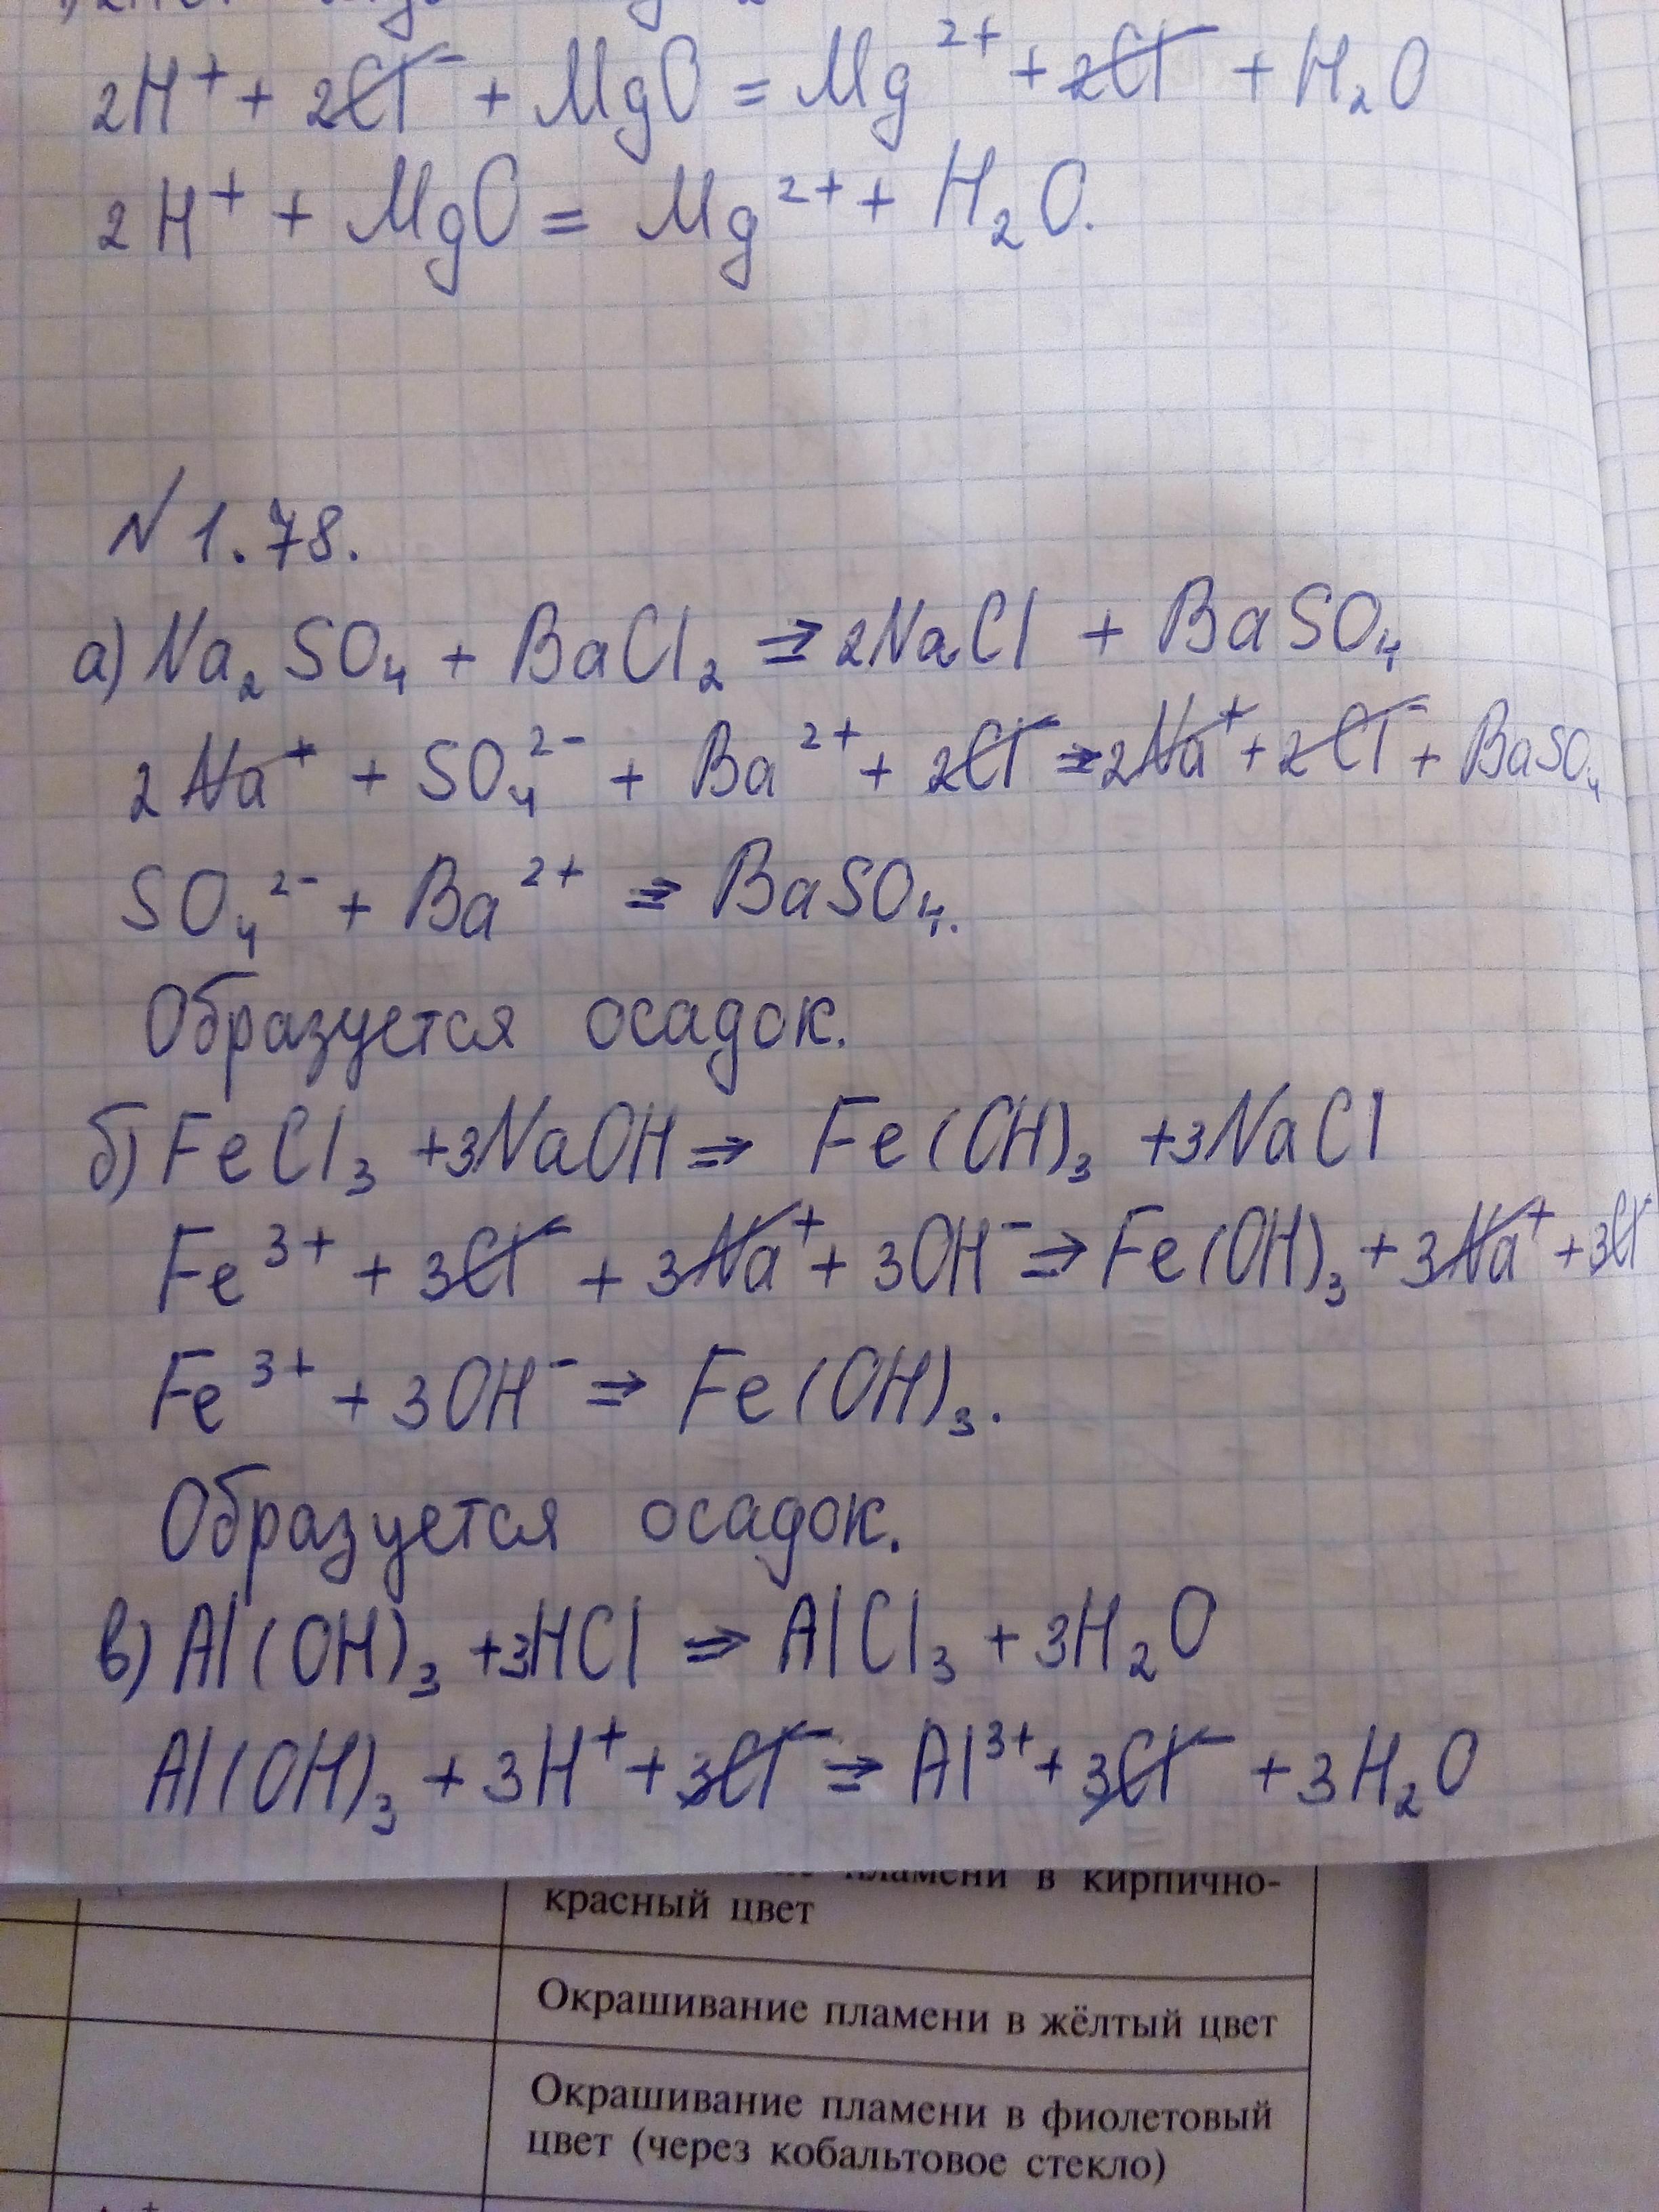 2H⁺ + 2Cl⁻ + MgO = Mg²⁺ + 2Cl⁻ + H₂O
2H⁺ + MgO = Mg²⁺ + H₂O.
№ 1.78.
а) Na₂SO₄ + BaCl₂ ⇒ 2NaCl + BaSO₄
2Na⁺ + SO₄²⁻ + Ba²⁺ + 2Cl⁻ ⇒ 2Na⁺ + 2Cl⁻ + BaSO₄
SO₄²⁻ + Ba²⁺ ⇒ BaSO₄.
Образуется осадок.
б) FeCl₃ + 3NaOH ⇒ Fe(OH)₃ + 3NaCl
Fe³⁺ + 3Cl⁻ + 3Na⁺ + 3OH⁻ ⇒ Fe(OH)₃ + 3Na⁺ + 3Cl⁻
Fe³⁺ + 3OH⁻ ⇒ Fe(OH)₃.
Образуется осадок.
в) Al(OH)₃ + 3HCl ⇒ AlCl₃ + 3H₂O
Al(OH)₃ + 3H⁺ + 3Cl⁻ ⇒ Al³⁺ + 3Cl⁻ + 3H₂O
пламени в кирпично-
красный цвет
Окрашивание пламени в жёлтый цвет
Окрашивание пламени в фиолетовый
цвет (через кобальтовое стекло)